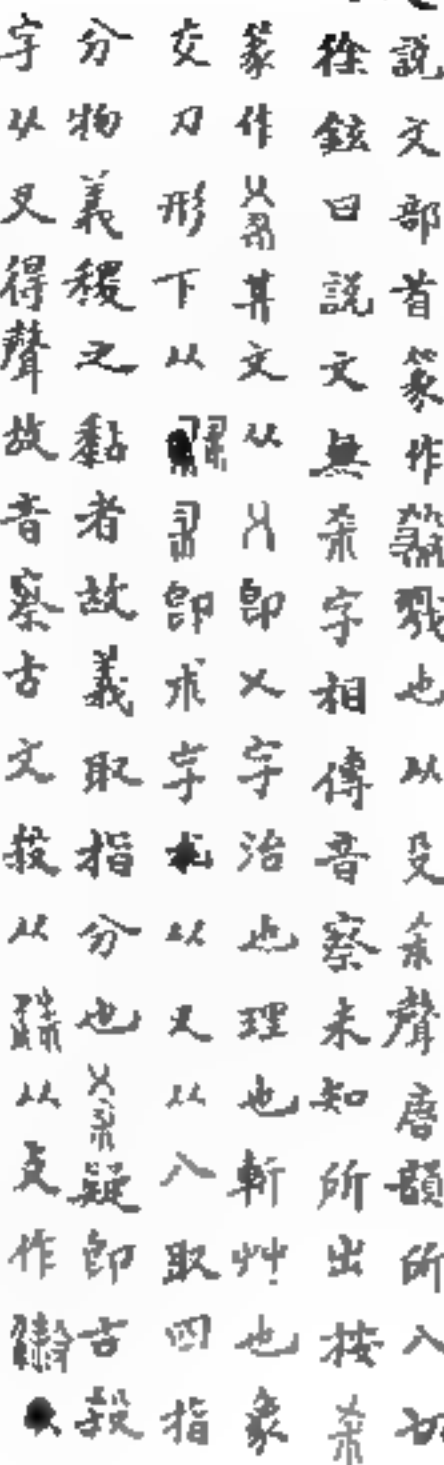 説文部首篆作戮也从殳杀聲唐韻所八切
徐鉉曰説文無杀字相傳音察未知所出按杀
篆作其文从乂即乂字治也理也斬艸也象
交刀形下从即朮字朮从又从八取四指
分物義稷之黏者故義取指分也疑即古殺
字从又得聲故音察古文殺从从攴作